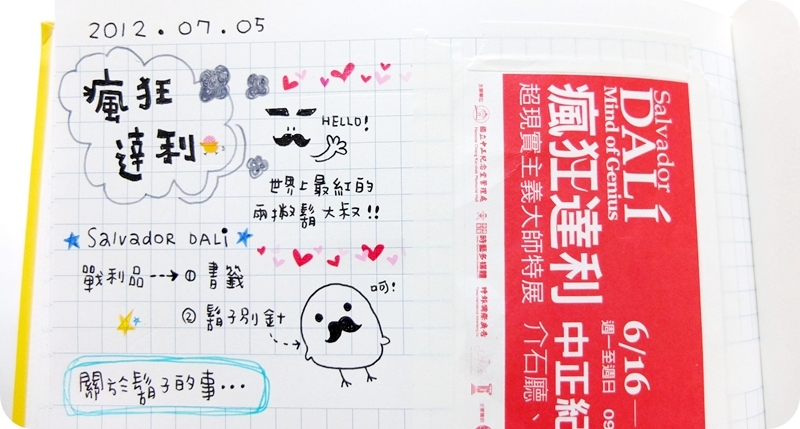 2012.07.05
瘋狂
達利
HELLO!
世界上最紅的
兩撇鬍大叔!!
Salvador DALi
戰利品 --→ ① 書籤
② 鬍子別針
呵!
關於鬍子的事...
Salvador
DALÍ
Mind of Genius
瘋狂達利
超現實主義大師特展
國立中正紀念堂管理處
時藝多媒體
6/16—
週一至週日 09
中正紀
介石廳、